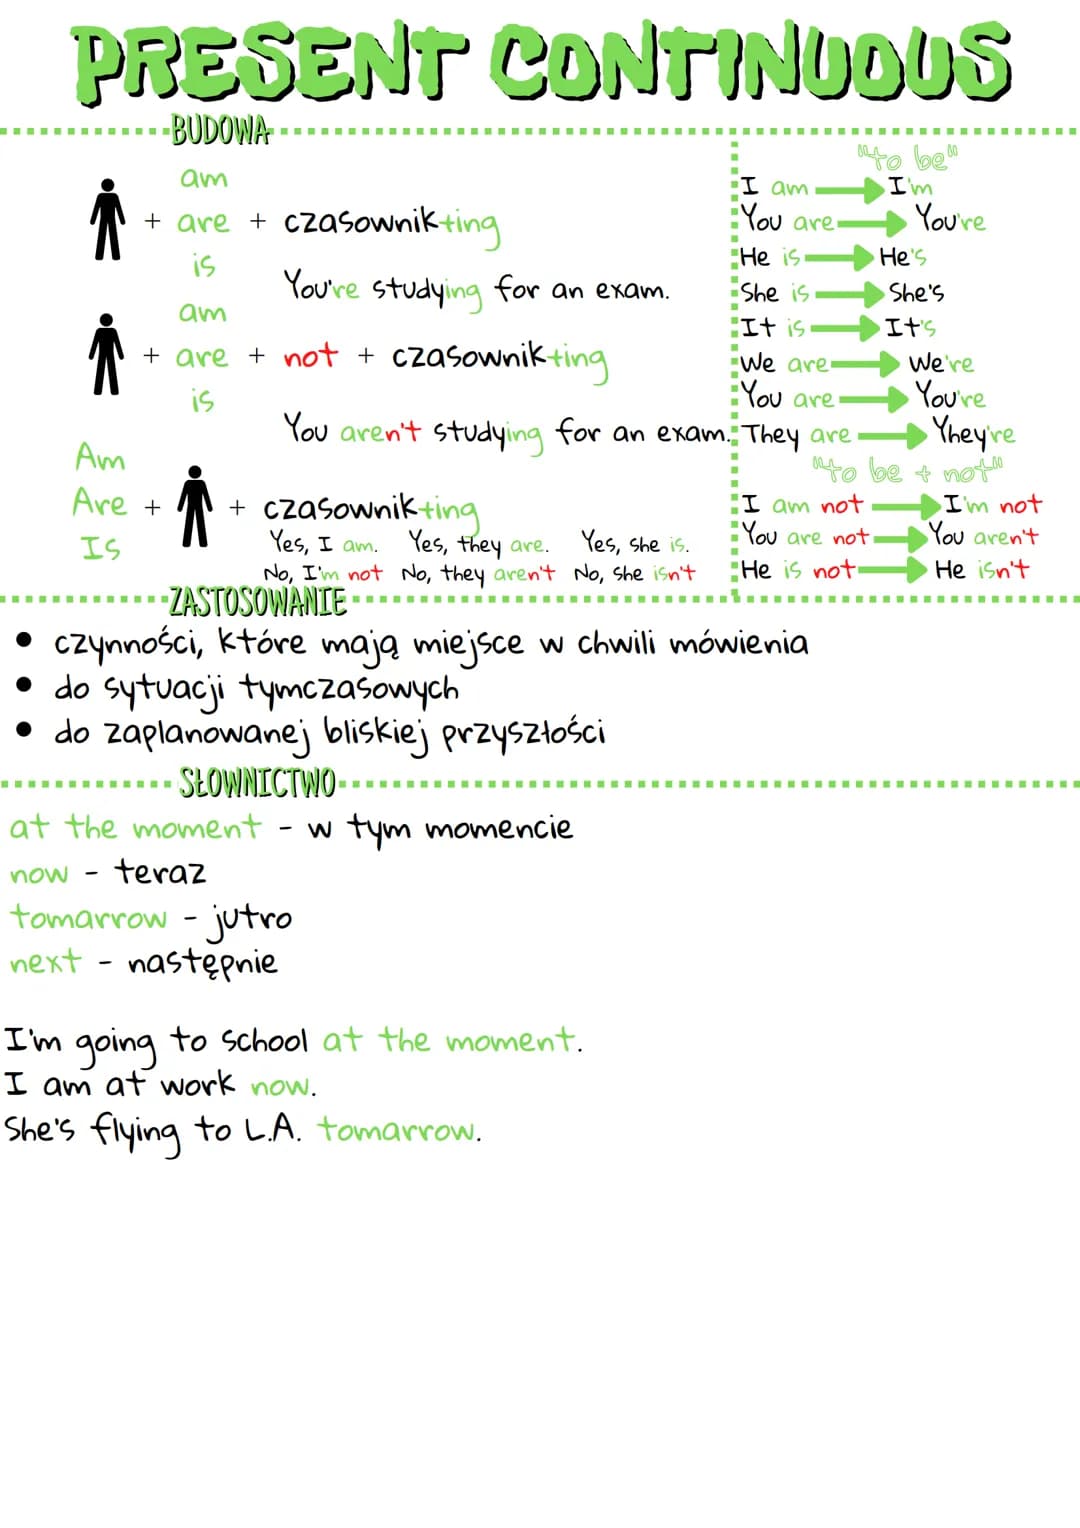 PRESENT CONTINUOUS
BUDOWA
am
+ are + czasownik+ing
is
You're studying for an exam.
am
+ are + not + czasownik+ing
is
You aren't studying for an exam.
Am
Are + + czasownik+ing
Is
Yes, I am. Yes, they are. Yes, she is.
No, I'm not No, they aren't No, she isn't
"to be"
I am I'm
You are You're
He is He's
She is She's
It is It's
We are We're
You are You're
They are Yhey're
"to be + not"
I am not I'm not
You are not You aren't
He is not He isn't
ZASTOSOWANIE
• czynności, które mają miejsce w chwili mówienia
• do sytuacji tymczasowych
• do zaplanowanej bliskiej przyszłości
SŁOWNICTWO
at the moment - w tym momencie
now - teraz
tomarrow - jutro
next - następnie
I'm going to school at the moment.
I am at work now.
She's flying to L.A. tomarrow.